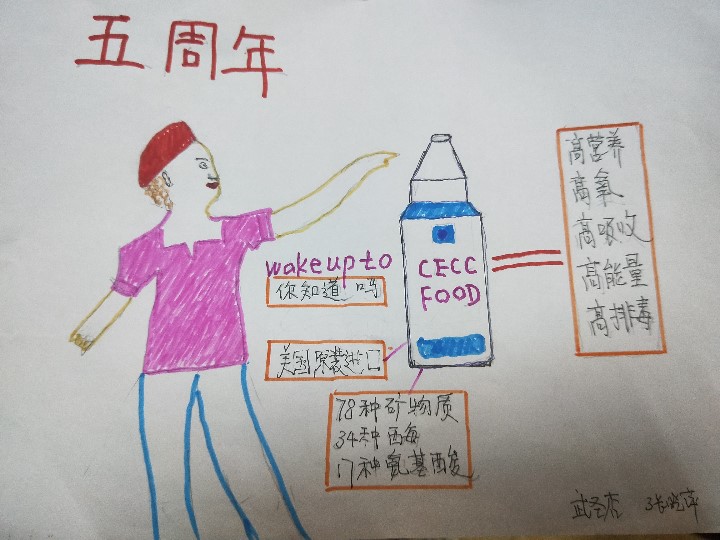 五周年
wake up to
你知道吗
CECC
FOOD
高营养
高氧
高吸收
高能量
高排毒
美国原装进口
78种矿物质
34种酶
17种氨基酸
武圣店 张晓萍